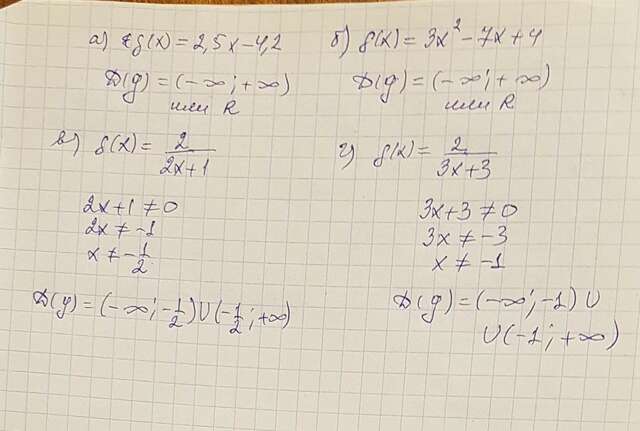 а) f(x) = 2,5x - 4,2
D(y) = (-∞; +∞)
или R
б) f(x) = 3x² - 7x + 4
D(y) = (-∞; +∞)
или R
в) f(x) = 2/(2x+1)
2x+1 ≠ 0
2x ≠ -1
x ≠ -1/2
D(y) = (-∞; -1/2) ∪ (-1/2; +∞)
г) f(x) = 2/(3x+3)
3x+3 ≠ 0
3x ≠ -3
x ≠ -1
D(y) = (-∞; -1) ∪
∪ (-1; +∞)